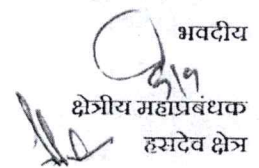 भवदीय
क्षेत्रीय महाप्रबंधक
हसदेव क्षेत्र